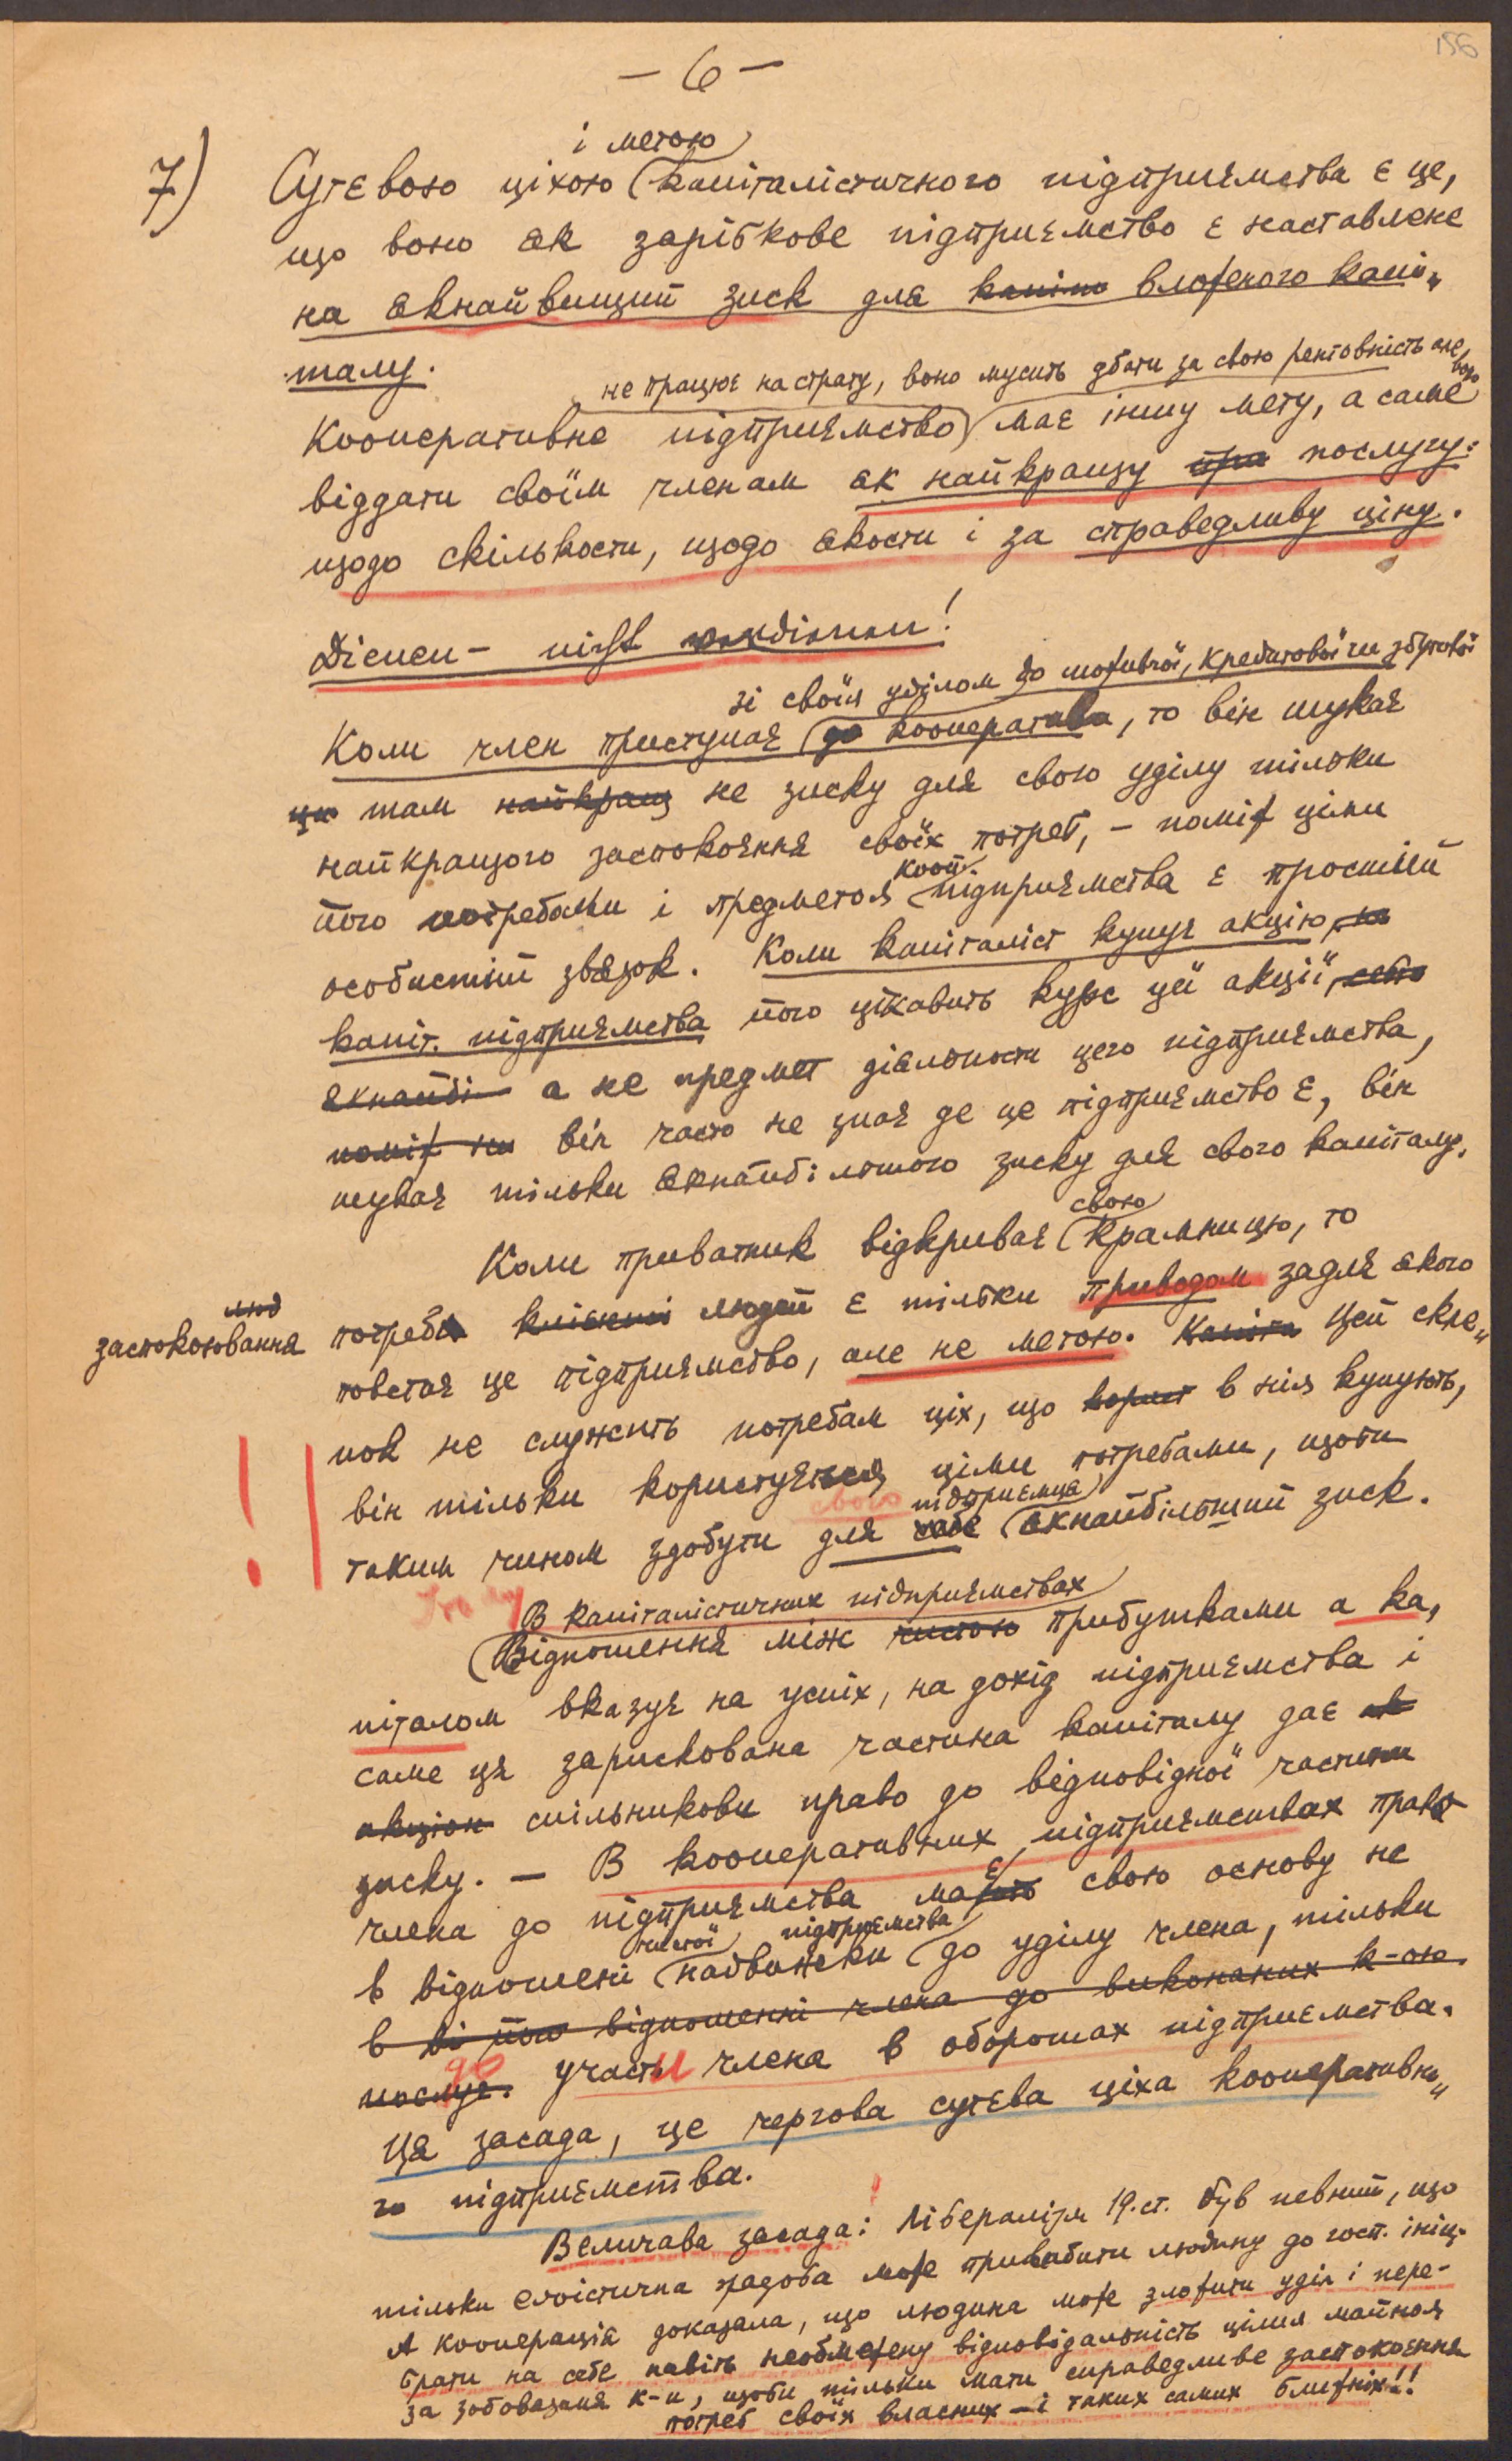 156
— 6 —
і метою
7) Суєвою ціхою капіталістичного підприємства є це,
що воно як зарібкове підприємство є наставлене
на якнайвищий зиск для капіта вложеного капі„
талу.
не працює на страту, воно мусить дбати за свою рентовність але воно
Кооперативне підприємство має іншу мету, а саме
віддати своїм членам як найкращу пра послугу:
щодо скількости, щодо якости і за справедливу ціну.
Dienen – nicht verdienen!
зі своїм уділом до молочної, кредитової чи збутової
Коли член приступає до кооператива, то він шукає
там найкращ не зиску для свого уділу тільки
найкращого заспокоєння своїх потреб, – поміж цими
кооп.
його потребами і предметом підприємства є простий
особистий звязок. Коли капіталіст купує акцію
капіт. підприємства його цікавить курс цеї акції,
якнайбі а не предмет діяльности цего підприємства,
поміж ни він часто не знає де це підприємство є, він
шукає тільки якнайбільшого зиску для свого капіталу.
свою
Коли приватник відкриває крамницю, то
люд
заспокоювання потреби клієнті людей є тільки приводом задля якого
повстає це підприємство, але не метою. Капіта Цей скле„
пок не служить потребам ціх, що корист в нім купують,
він тільки користується цими потребами, щоби
свого підприємця
таким чином здобути для себе якнайбільший зиск.
Тому
В капіталістичних підприємствах
Відношення між чистою прибутками а ка„
піталом вказує на успіх, на дохід підприємства і
саме ця зарискована частина капіталу дає ак
акціон спільникови право до відповідної частини
зиску. – В кооперативних підприємствах право
є
члена до підприємства мають свою основу не
чистої підприємства
в відношені надвижки до уділу члена, тільки
в ві його відношенні члена до виконаних к-ою
до
послуг. участи члена в оборотах підприємства.
Ця засада, це чергова суєва ціха кооперативно„
го підприємства.
Велична засада: Лібералізм 19. ст. був певний, що
тільки егоїстична жадоба може привабити людину до госп. ініц.
А кооперація доказала, що людина може зложити уділ і пере-
брати на себе навіть необмежену відповідальність цілим майном
за зобовязаня к-и, щоби тільки мати справедливе заспокоєння
потреб своїх власних – і таких самих ближніх!!